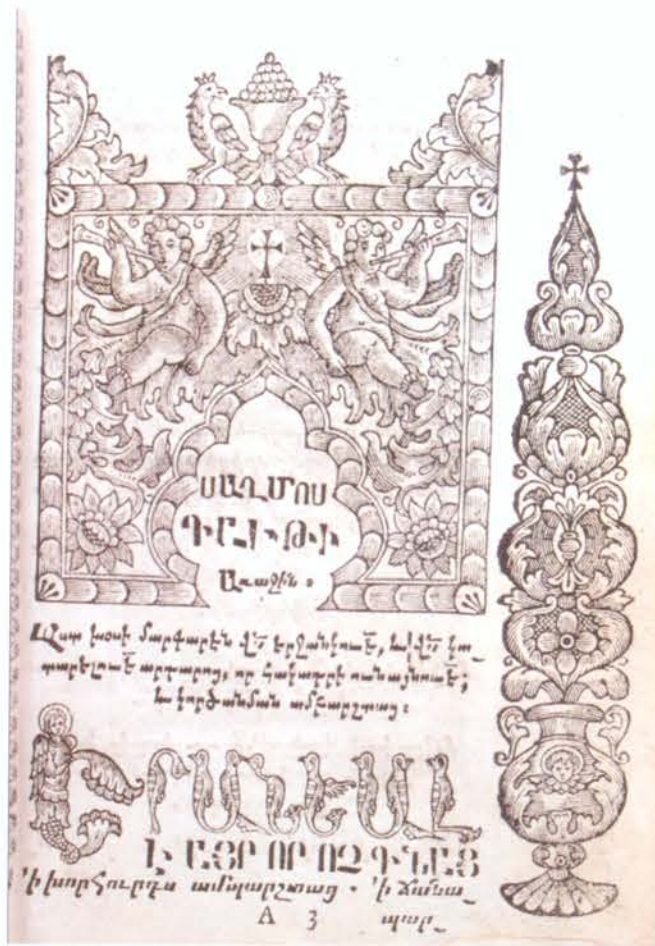 ՍԱՂՄՈՍ
ԴԱՒԹԻ
Առաջին ։
Աստ խօսի մարգարէն վս̃ երջանկուե̃, և վս̃ կա_
տարելուե̃ արդարոց, որ հակադրէ ունայնուե̃;
և կործանման ամբարշտաց ։
ԵՐԱՆԵԱԼ
Է ԱՅՐ ՈՐ ՈՉ ԳՆԱՑ
'ի խորհուրդս ամպարշտաց . 'ի ճանա_
A 3 պար_